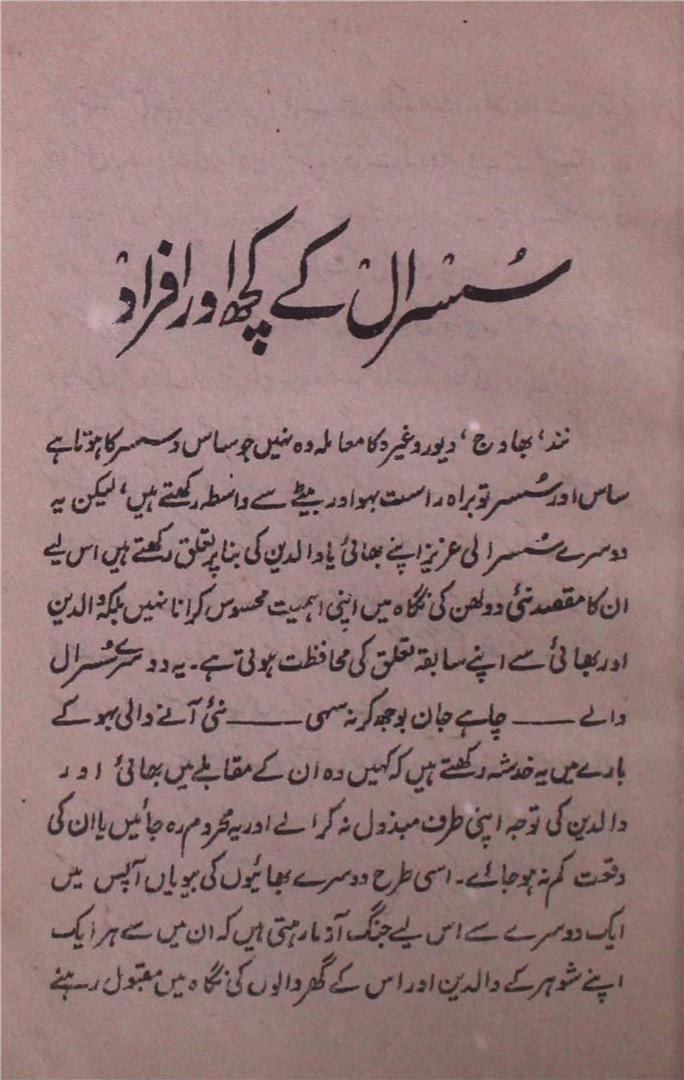 سُسرال کے کچھ اور افراد
نند، بھاوج، دیور وغیرہ کا معاملہ وہ نہیں جو ساس و سسر کا ہوتا ہے
ساس اور سُسر تو براہ راست بہو اور بیٹے سے واسطہ رکھتے ہیں، لیکن یہ
دوسرے سُسرالی عزیز اپنے بھائی یا والدین کی بنا پر تعلق رکھتے ہیں اس لیے
ان کا مقصد نئی دولھن کی نگاہ میں اپنی اہمیت محسوس کرانا نہیں بلکہ والدین
اور بھائی سے اپنے سابقہ تعلق کی محافظت ہوتی ہے۔ یہ دوسرے سُسرال
والے —— چاہے جان بوجھ کر نہ سہی —— نئی آنے والی بہو کے
بارے میں یہ خدشہ رکھتے ہیں کہ کہیں وہ ان کے مقابلے میں بھائی اور
والدین کی توجہ اپنی طرف مبذول نہ کرالے اور یہ محروم رہ جائیں یا ان کی
وقعت کم نہ ہو جائے۔ اسی طرح دوسرے بھائیوں کی بیویاں آپس میں
ایک دوسرے سے اس لیے جنگ آزما رہتی ہیں کہ ان میں سے ہر ایک
اپنے شوہر کے والدین اور اس کے گھر والوں کی نگاہ میں مقبول رہنے